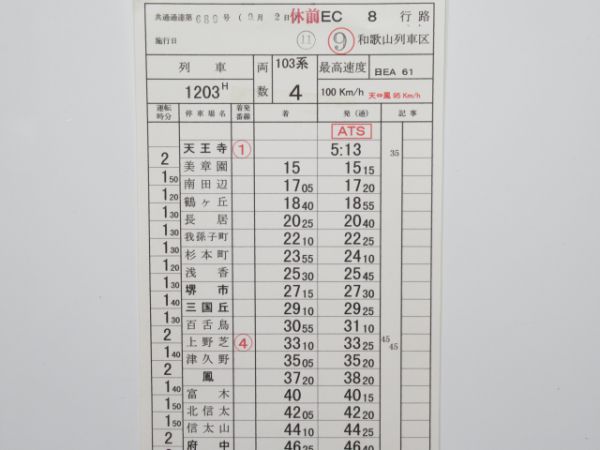 共通通達第 689 号 ( 9月 2日 休前 EC 8 行路
施行日 ⑪ ⑨ 和歌山列車区
列車 両数 103系 最高速度 BEA 61
1203H 4 100 Km/h 天⇔鳳 95 Km/h
運転時分 停車場名 着発番線 着 発(通) 記事
ATS
天王寺 ① 5:13 35
2 美章園 15 15 15
1 50 南田辺 17 05 17 20
1 20 鶴ヶ丘 18 40 18 55
1 30 長居 20 25 20 40
1 30 我孫子町 22 10 22 25
1 30 杉本町 23 55 24 10
1 20 浅香 25 30 25 45
1 30 堺市 27 15 27 30
1 40 三国丘 29 10 29 25
1 30 百舌鳥 30 55 31 10
2 上野芝 ④ 33 10 33 25 45 45
1 40 津久野 35 05 35 20
2 鳳 37 20 38 20
1 40 富木 40 40 15
1 50 北信太 42 05 42 20
1 50 信太山 44 10 44 25
2 府中 46 25 46 40